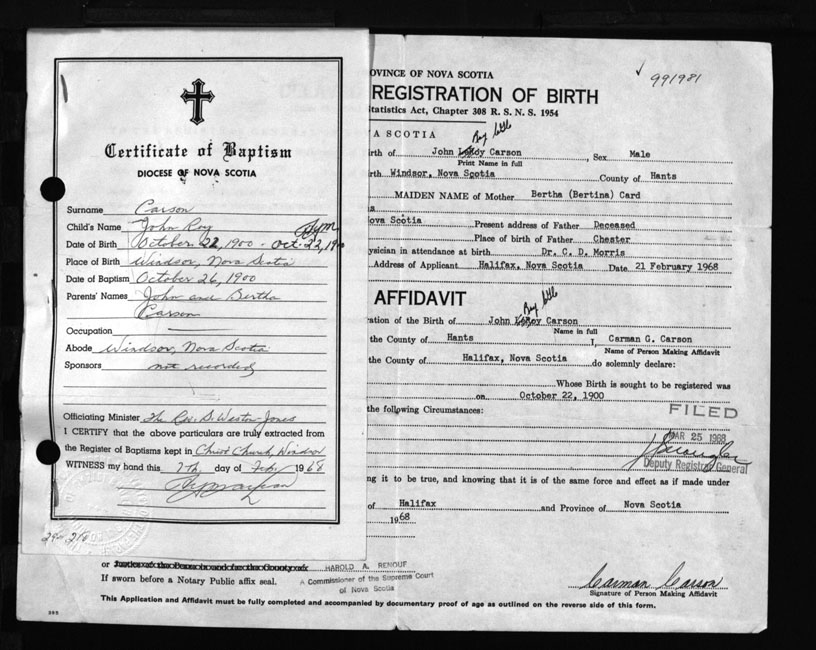 Certificate of Baptism
DIOCESE OF NOVA SCOTIA
Surname Carson
Child's Name John Roy
Date of Birth October 22, 1900 - Oct. 22, 1900
Place of Birth Windsor, Nova Scotia
Date of Baptism October 26, 1900
Parents' Names John and Bertha
Carson
Occupation
Abode Windsor, Nova Scotia
Sponsors not recorded
Officiating Minister The Rev. D. Weston-Jones
I CERTIFY that the above particulars are truly extracted from
the Register of Baptisms kept in Christ Church, Windsor
WITNESS my hand this 7th day of Feb. 1968
991981
OVINCE OF NOVA SCOTIA
REGISTRATION OF BIRTH
tatistics Act, Chapter 308 R. S. N. S. 1954
A SCOTIA
irth of John Carson Sex Male
Print Name in full
Birth Windsor, Nova Scotia County of Hants
MAIDEN NAME of Mother Bertha (Bertina) Card
Nova Scotia Present address of Father Deceased
Place of birth of Father Chester
ysician in attendance at birth Dr. C. D. Morris
Address of Applicant Halifax, Nova Scotia Date 21 February 1968
AFFIDAVIT
ration of the Birth of John Carson
Name in full
the County of Hants I, Carman G. Carson
Name of Person Making Affidavit
the County of Halifax, Nova Scotia do solemnly declare:
Whose Birth is sought to be registered was
on October 22, 1900
the following Circumstances:
FILED
MAR 25 1968
Deputy Registrar General
ing it to be true, and knowing that it is of the same force and effect as if made under
of Halifax and Province of Nova Scotia
1968
or HAROLD A. RENOUF
If sworn before a Notary Public affix seal. A Commissioner of the Supreme Court
of Nova Scotia
Carman Carson
Signature of Person Making Affidavit
This Application and Affidavit must be fully completed and accompanied by documentary proof of age as outlined on the reverse side of this form.